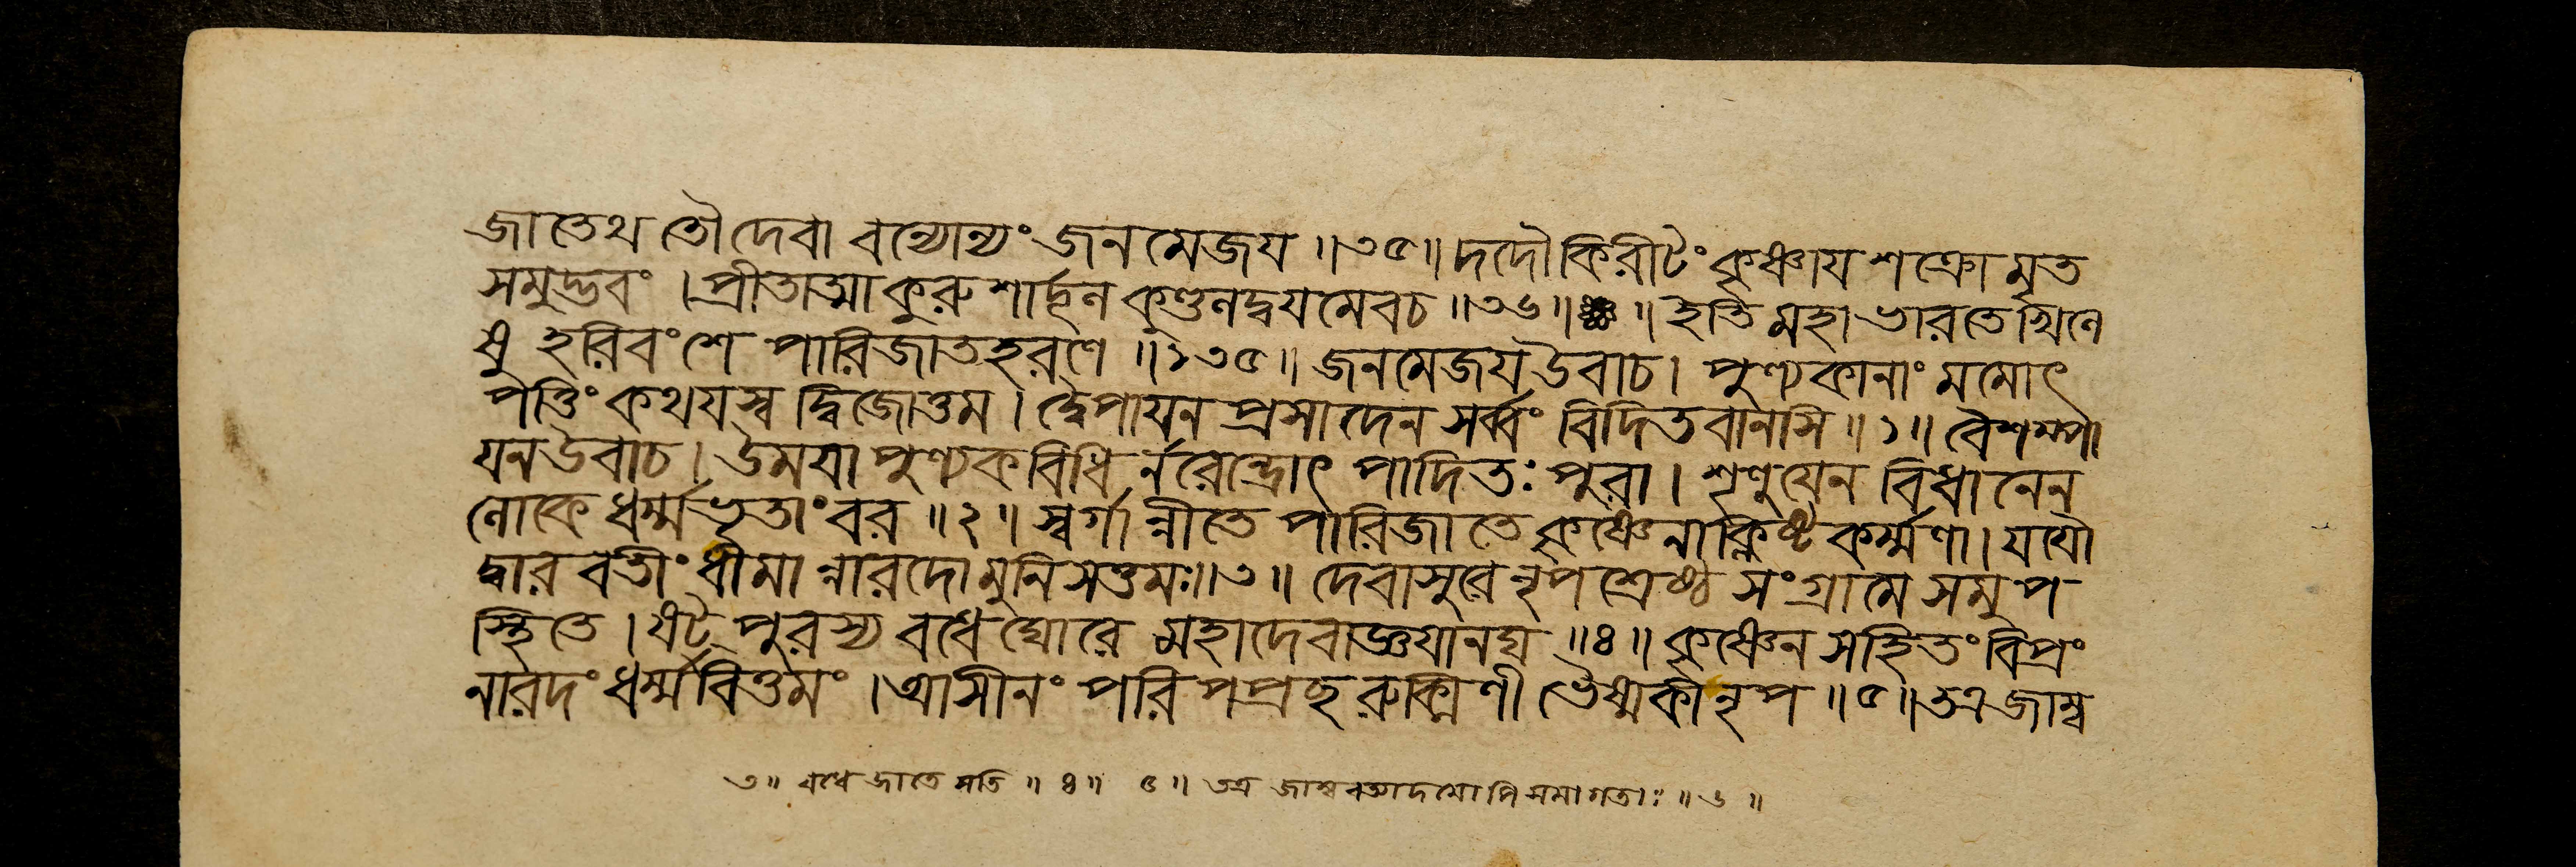 জাতেথ তৌদেবা বন্যোন্যং জনমেজয ॥৩৫॥ দদৌকিরীটং কৃষ্ণায শক্রোমৃত
সমুদ্ভবং । প্রীতাত্মা কুরুশার্দ্দূন কুণ্ডনদ্বযমেবচ ॥৩৬॥ ॥ ইতি মহাভারতে খিনে
ষু হরিবংশে পারিজাতহরণে ॥১৩৫॥ জনমেজযউবাচ । পুণ্যকানাং মমোৎ
পত্তিং কথযস্ব দ্বিজোত্তম । দ্বৈপাযন প্রসাদেন সর্ব্বং বিদিতবানসি ॥১॥ বৈশম্পা
যনউবাচ । উমযা পুণ্যকবিধি র্নরেন্দ্রোৎ পাদিতঃ পুরা । শৃণুযেন বিধানেন
নোকে ধর্ম্মভৃতাং বর ॥২॥ স্বর্গান্নীতে পারিজাতে কৃষ্ণেনাক্লিষ্টকর্ম্মণা । যযৌ
দ্বারবতীং ধীমান্নারদোমুনিসত্তমঃ॥৩॥ দেবাসুরে নৃপশ্রেষ্ঠ সংগ্রামে সমুপ
স্থিতে । ষট্পুরস্য বধে ঘোরে মহাদেবাজ্ঞযানঘ ॥৪॥ কৃষ্ণেন সহিতং বিপ্রং
নারদং ধর্ম্মবিত্তমং । আসীনং পরিপপ্রছ রুক্মিণী ভৈষ্মকী নৃপ ॥৫॥ তত্র জাম্ব
৩॥ বধে জাতে সতি ॥ ৪॥ ৫॥ তত্র জাম্ববত্যাদযোপি সমাগতাঃ ॥৬॥